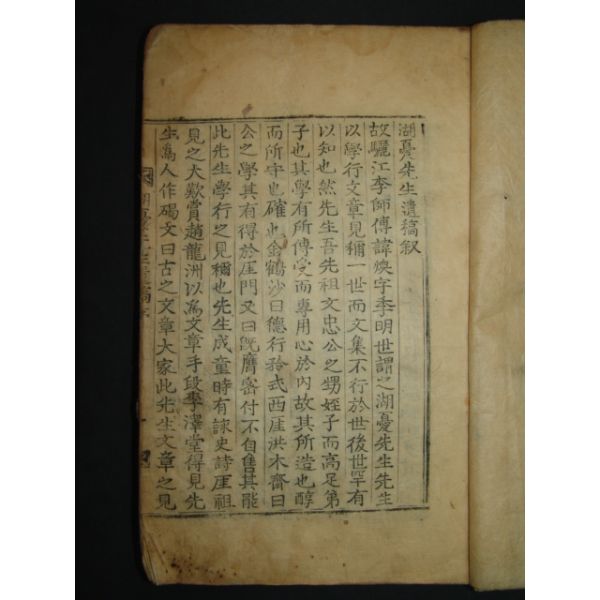 湖憂先生遺稿叙
故驪江李師傅諱煥字季明世謂之湖憂先生先生
以學行文章見稱一世而文集不行於世後世罕有
以知也然先生吾先祖文忠公之甥姪子而高足第
子也其學有所傳受而專用心於內故其所造也醇
而所守也確也金鶴沙曰德行矜式西厓洪木齋曰
公之學其有得於厓門又曰旣膺密付不自售其能
此先生學行之見稱也先生成童時有詠史詩厓祖
見之大歎賞趙龍洲以爲文章手段李澤堂得見先
生爲人作碣文曰古之文章大家此先生文章之見